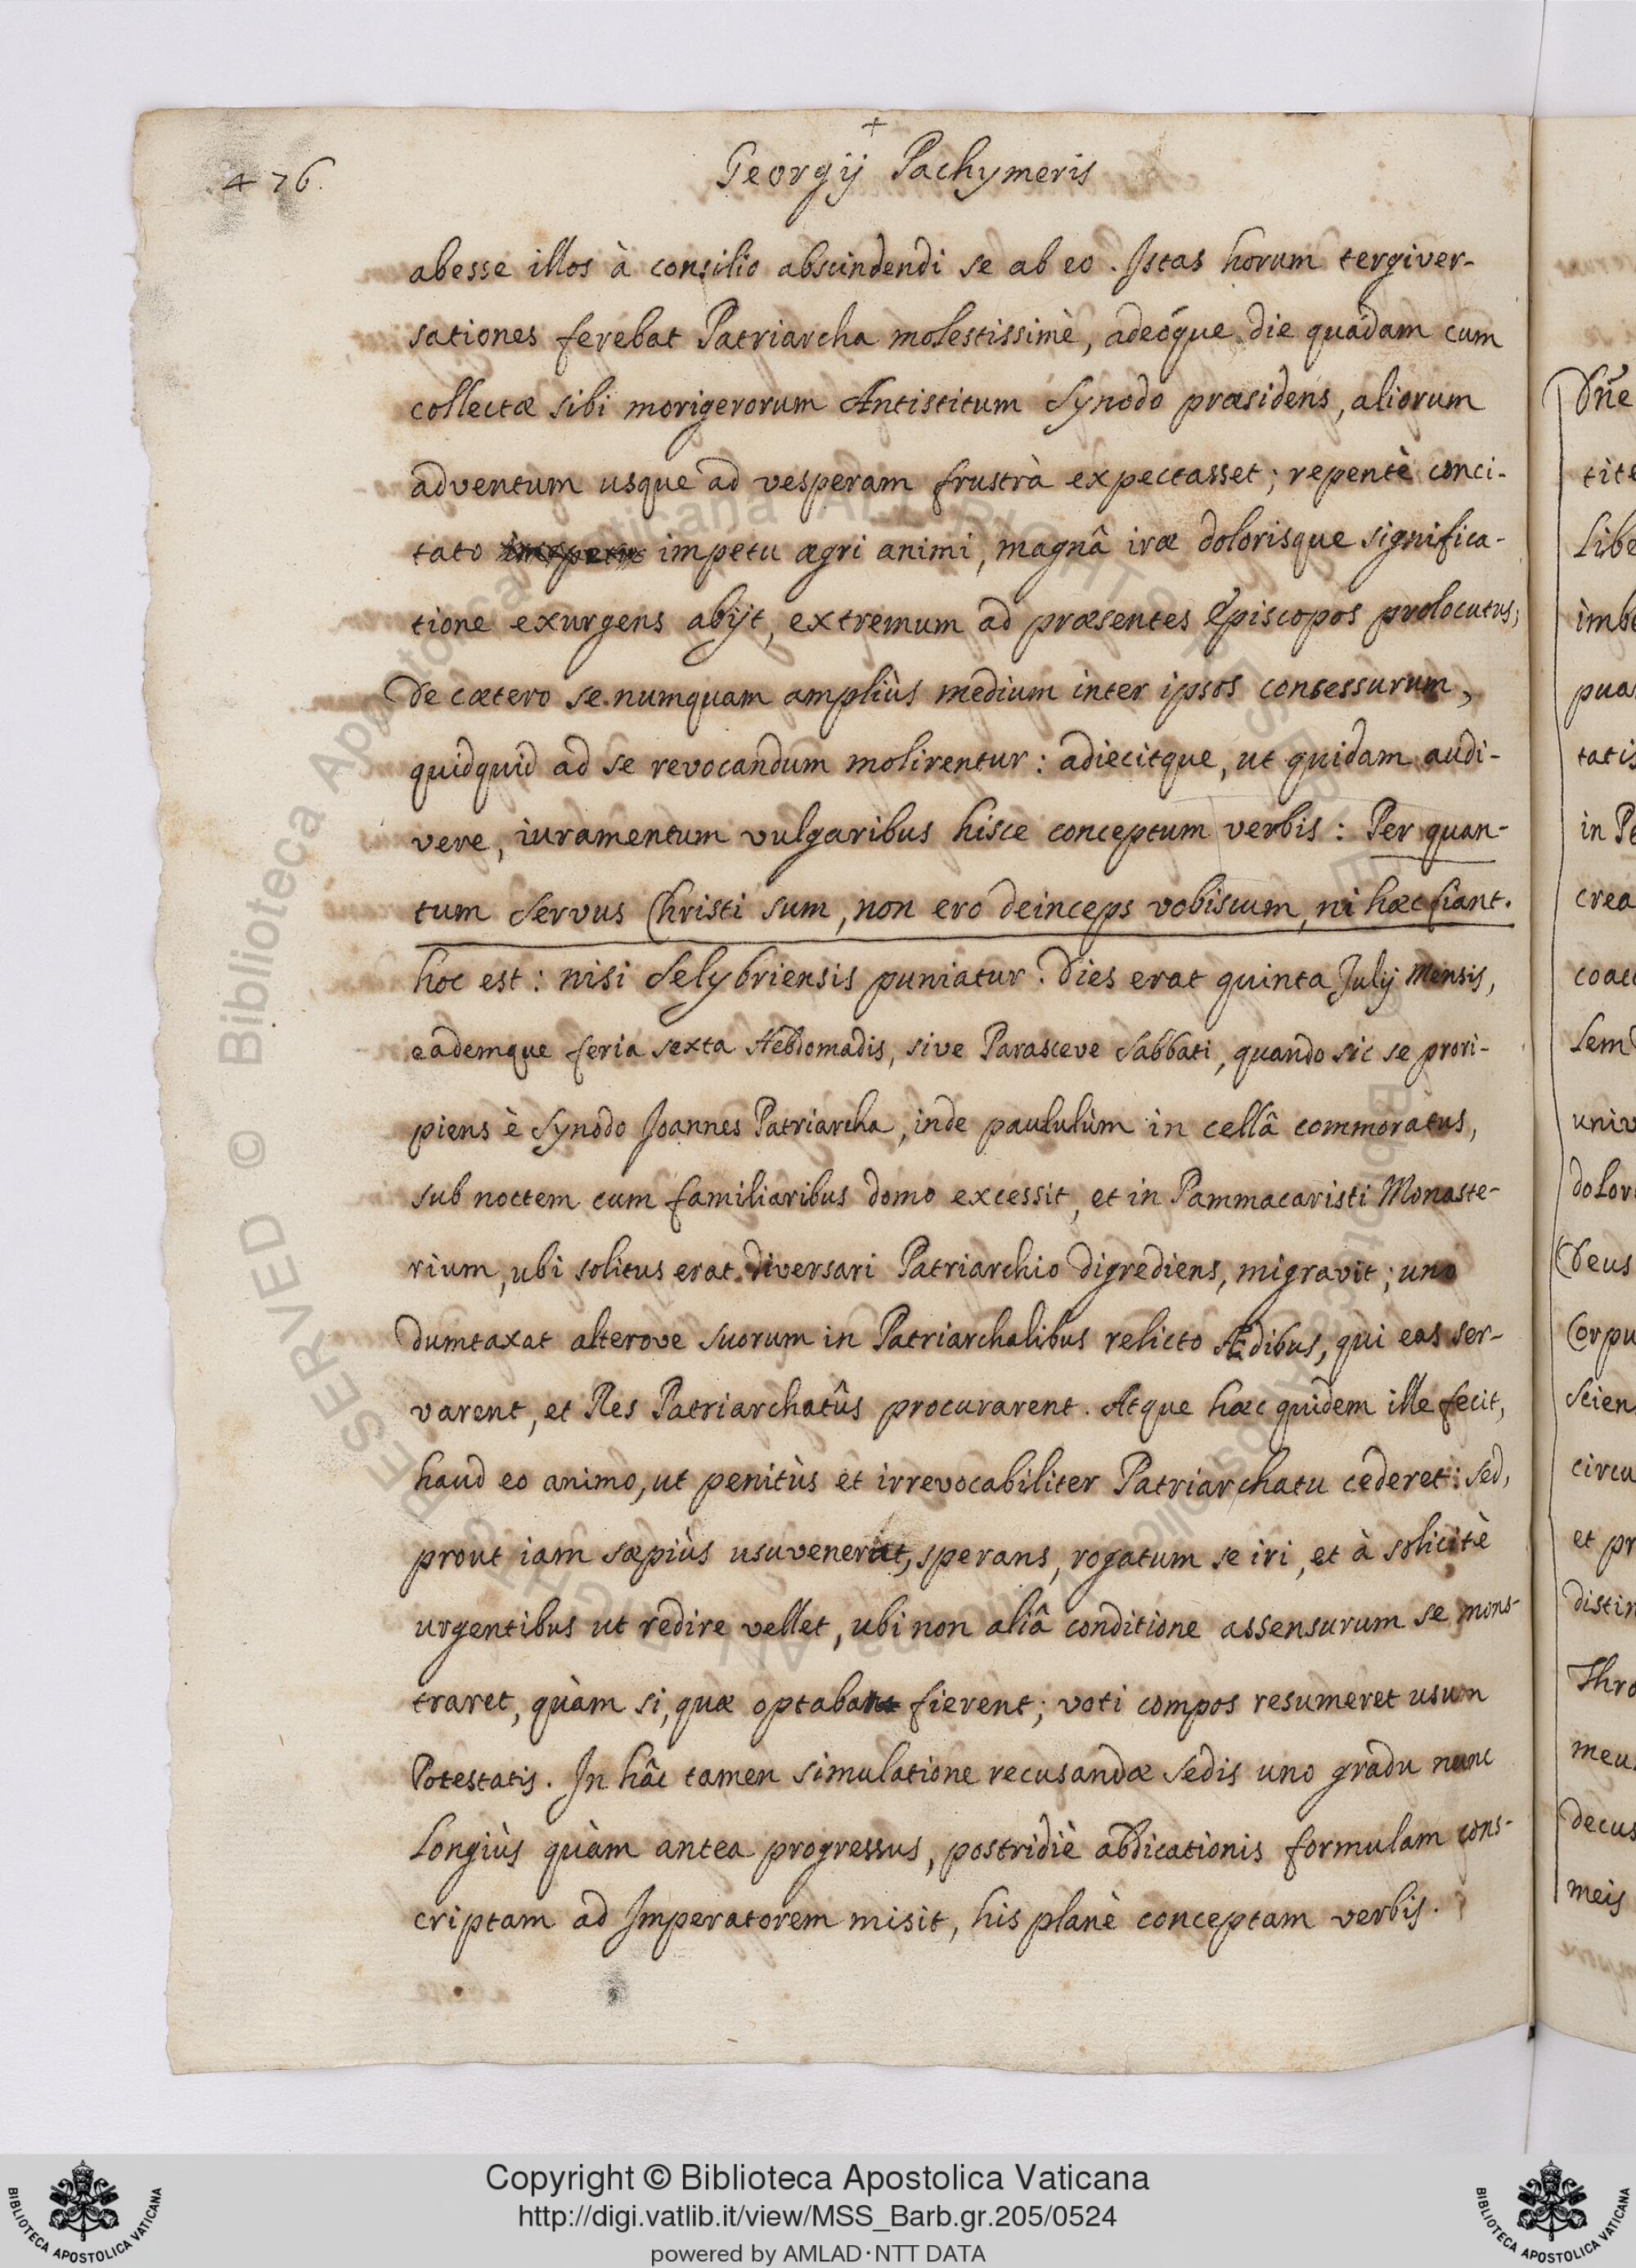 476.
+
Georgij Pachymeris
abesse illos à consilio abscindendi se ab eo. Istas horum tergiver-
sationes ferebat Patriarcha molestissimè, adeóque die quâdam cum
collectæ sibi morigerorum Antistitum Synodo præsidens, aliorum
adventum usque ad vesperam frustrà expectasset; repentè conci-
tato impetu ægri animi, magnâ iræ dolorisque significa-
tione exurgens abijt, extremum ad præsentes Episcopos prolocutus;
De cætero se numquam ampliùs medium inter ipsos consessurum,
quidquid ad se revocandum molirentur: adiecitque, ut quidam audi-
vere, iuramentum vulgaribus hisce conceptum verbis: Per quan-
tum Servus Christi sum, non ero deinceps vobiscum, ni hæc fiant.
hoc est: nisi Selybriensis puniatur. Dies erat quinta Julij Mensis,
eademque feria sexta Hebdomadis, sive Parasceve Sabbati, quando sic se prori-
piens è Synodo Joannes Patriarcha, inde paululùm in cellâ commoratus,
sub noctem cum familiaribus domo excessit, et in Pammacaristi Monaste-
rium, ubi solitus erat diversari Patriarchio digrediens, migravit; uno
dumtaxat alterove suorum in Patriarchalibus relicto Ædibus, qui eas ser-
varent, et Res Patriarchatûs procurarent. Atque hæc quidem ille fecit,
haud eo animo, ut penitùs et irrevocabiliter Patriarchatu cederet: sed,
prout iam sæpiùs usuvenerat, sperans, rogatum se iri, et à solicitè
urgentibus ut redire vellet, ubi non aliâ conditione assensurum se mons-
traret, quàm si, quæ optabat fierent; voti compos resumeret usum
Potestatis. In hâc tamen simulatione recusandæ sedis uno gradu nunc
Longiùs quàm antea progressus, postridiè abdicationis formulam cons-
criptam ad Imperatorem misit, his planè conceptam verbis.
Dñe
tite
Libe
imbe
pua
tatis
in Pe
crea
coac
Lem
univ
dolor
Deus
Corpu
Scien
circu
et pr
distin
Thro
meu
decus
meis
Copyright © Biblioteca Apostolica Vaticana
http://digi.vatlib.it/view/MSS_Barb.gr.205/0524
powered by AMLAD·NTT DATA
BIBLIOTECA APOSTOLICA VATICANA
BIBLIOTECA APOSTOLICA VATICANA